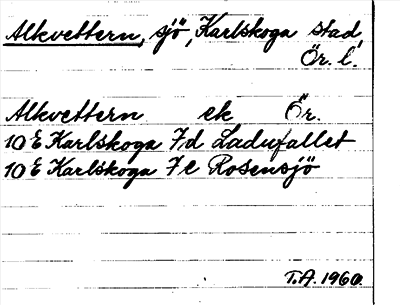 Alkvettern, sjö, Karlskoga stad,
Ör. l.
Alkvettern ek Ör.
10 E Karlskoga 7d Ladufallet
10 E Karlskoga 7e Rosensjö
T.A. 1960